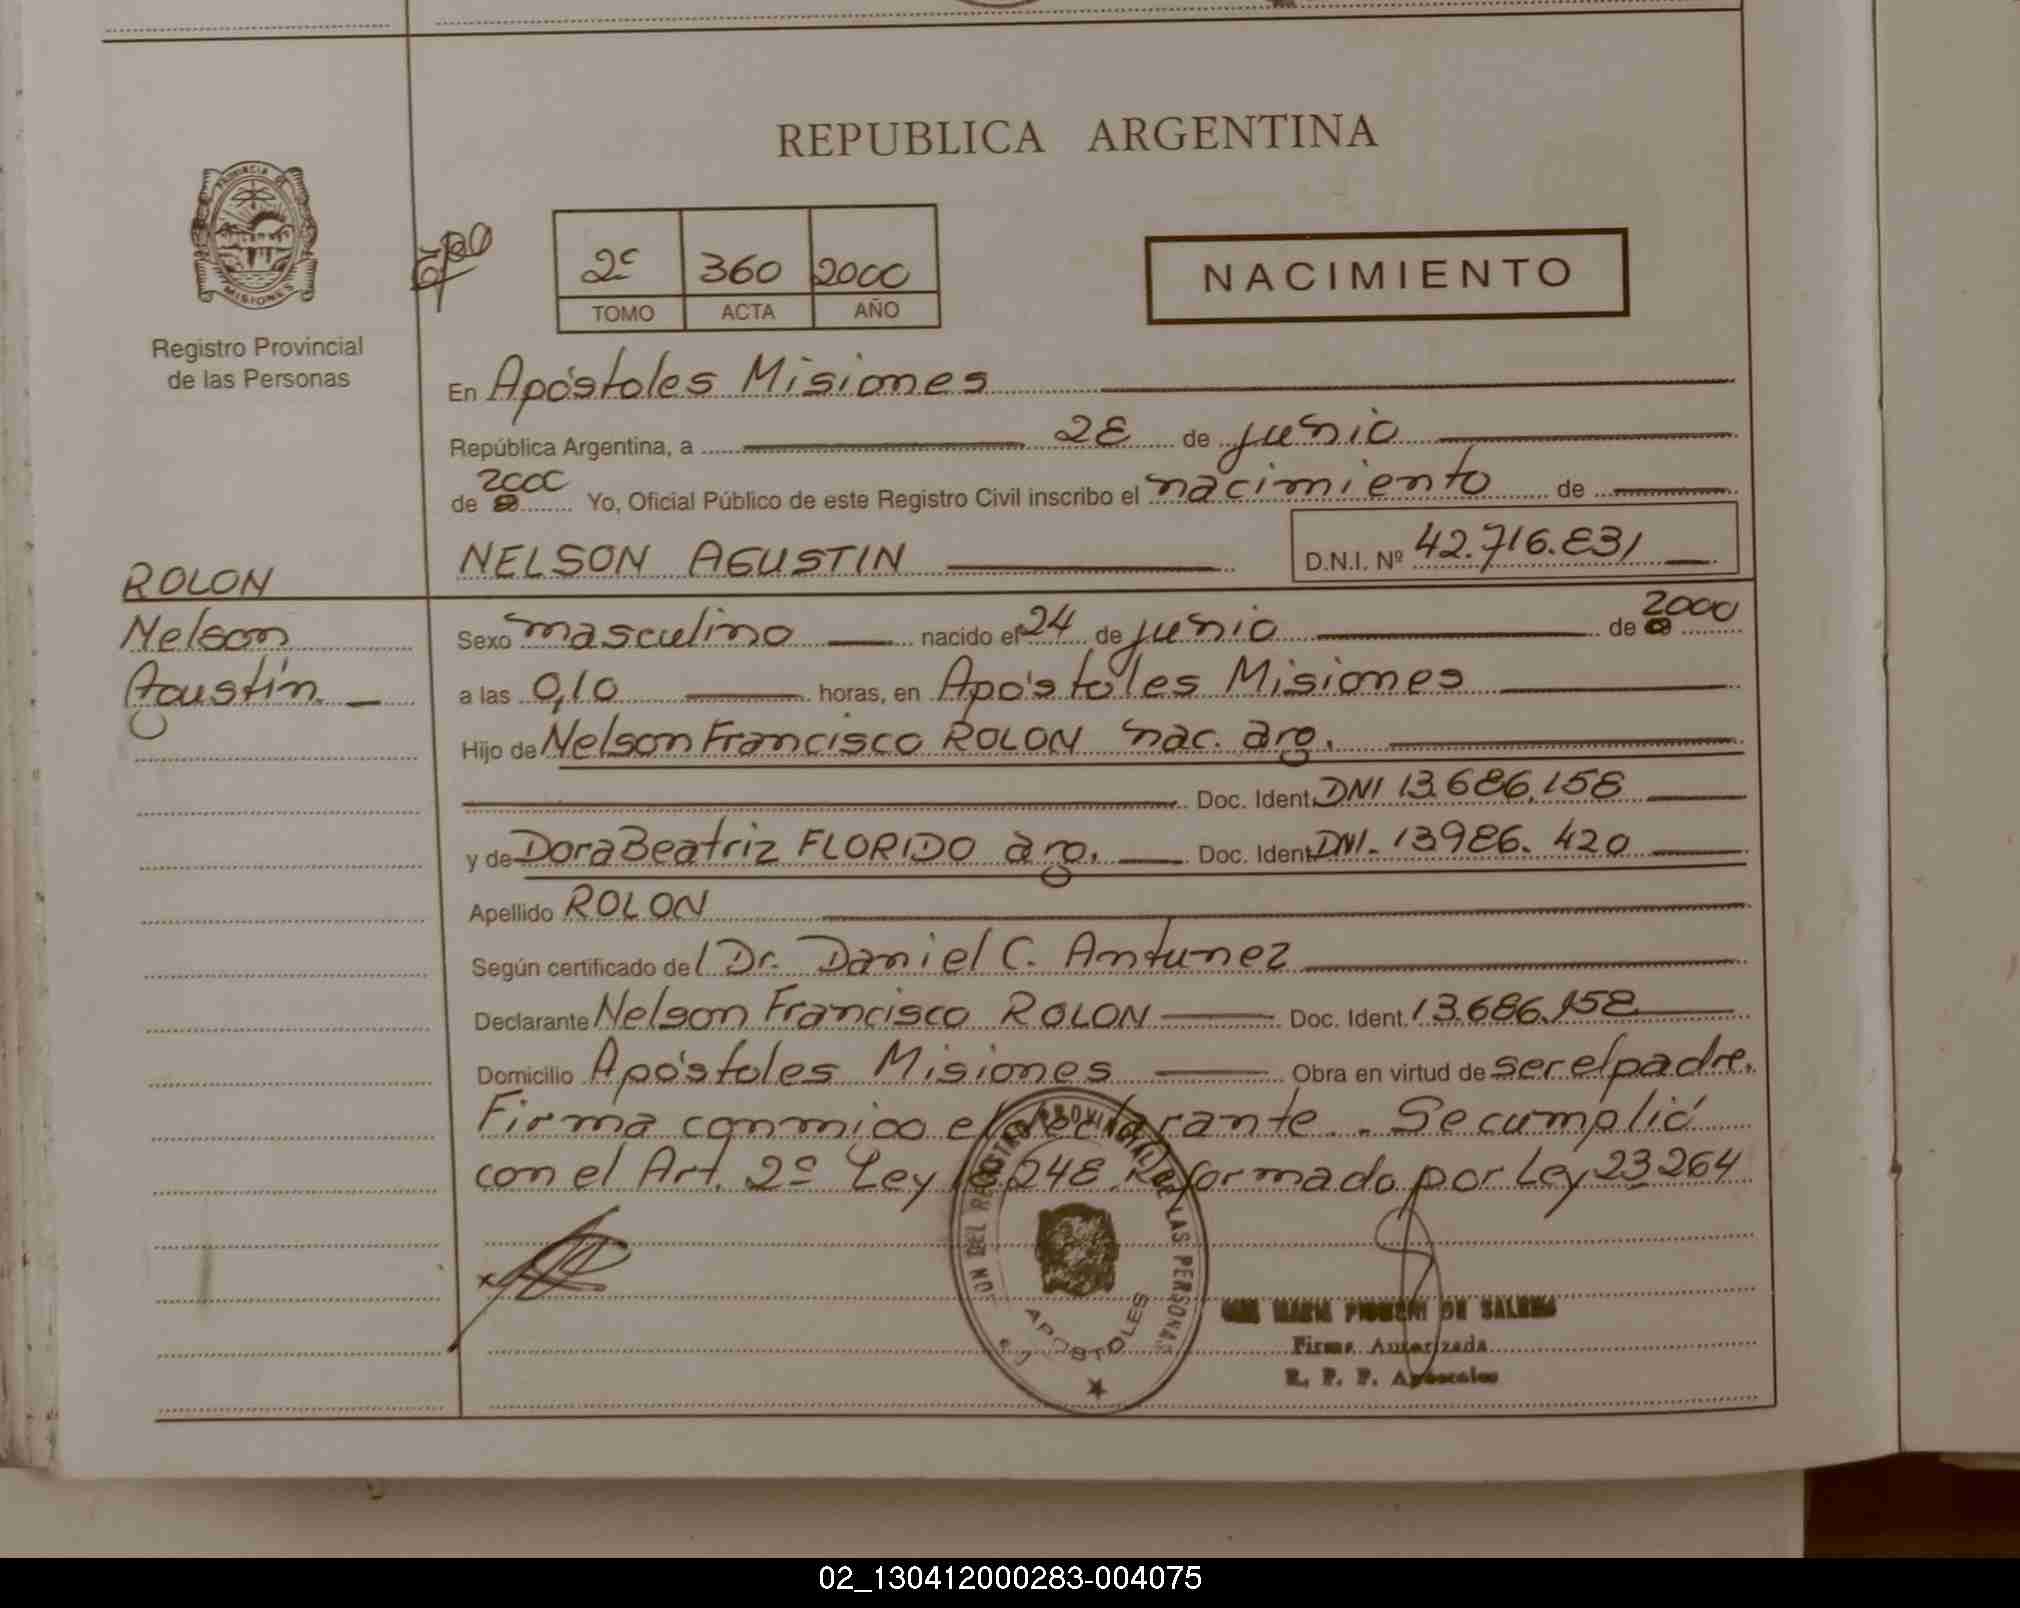 REPUBLICA ARGENTINA
PROVINCIA DE
MISIONES
Registro Provincial
de las Personas
2º 360 2000
TOMO ACTA AÑO
NACIMIENTO
En Apóstoles Misiones
República Argentina, a 28 de junio
de 2000 Yo, Oficial Público de este Registro Civil inscribo el nacimiento de
NELSON AGUSTIN D.N.I. Nº 42.716.831
ROLON
Nelson
Agustin
Sexo masculino nacido el 24 de junio de 2000
a las 0,10 horas, en Apóstoles Misiones
Hijo de Nelson Francisco ROLON nac. arg.
Doc. Ident. DNI 13.686.158
y de Dora Beatriz FLORIDO arg. Doc. Ident. DNI. 13986.420
Apellido ROLON
Según certificado del Dr. Daniel C. Antunez
Declarante Nelson Francisco ROLON Doc. Ident. 13.686.158
Domicilio Apóstoles Misiones Obra en virtud de ser el padre.
Firma conmigo el declarante. Se cumplió
con el Art. 2º Ley 18.248. Reformado por Ley 23264
DEL REGISTRO PROVINCIAL DE LAS PERSONAS
APOSTOLES
MARIA DE
Firma Autorizada
R. P. P. Apóstoles
02_130412000283-004075